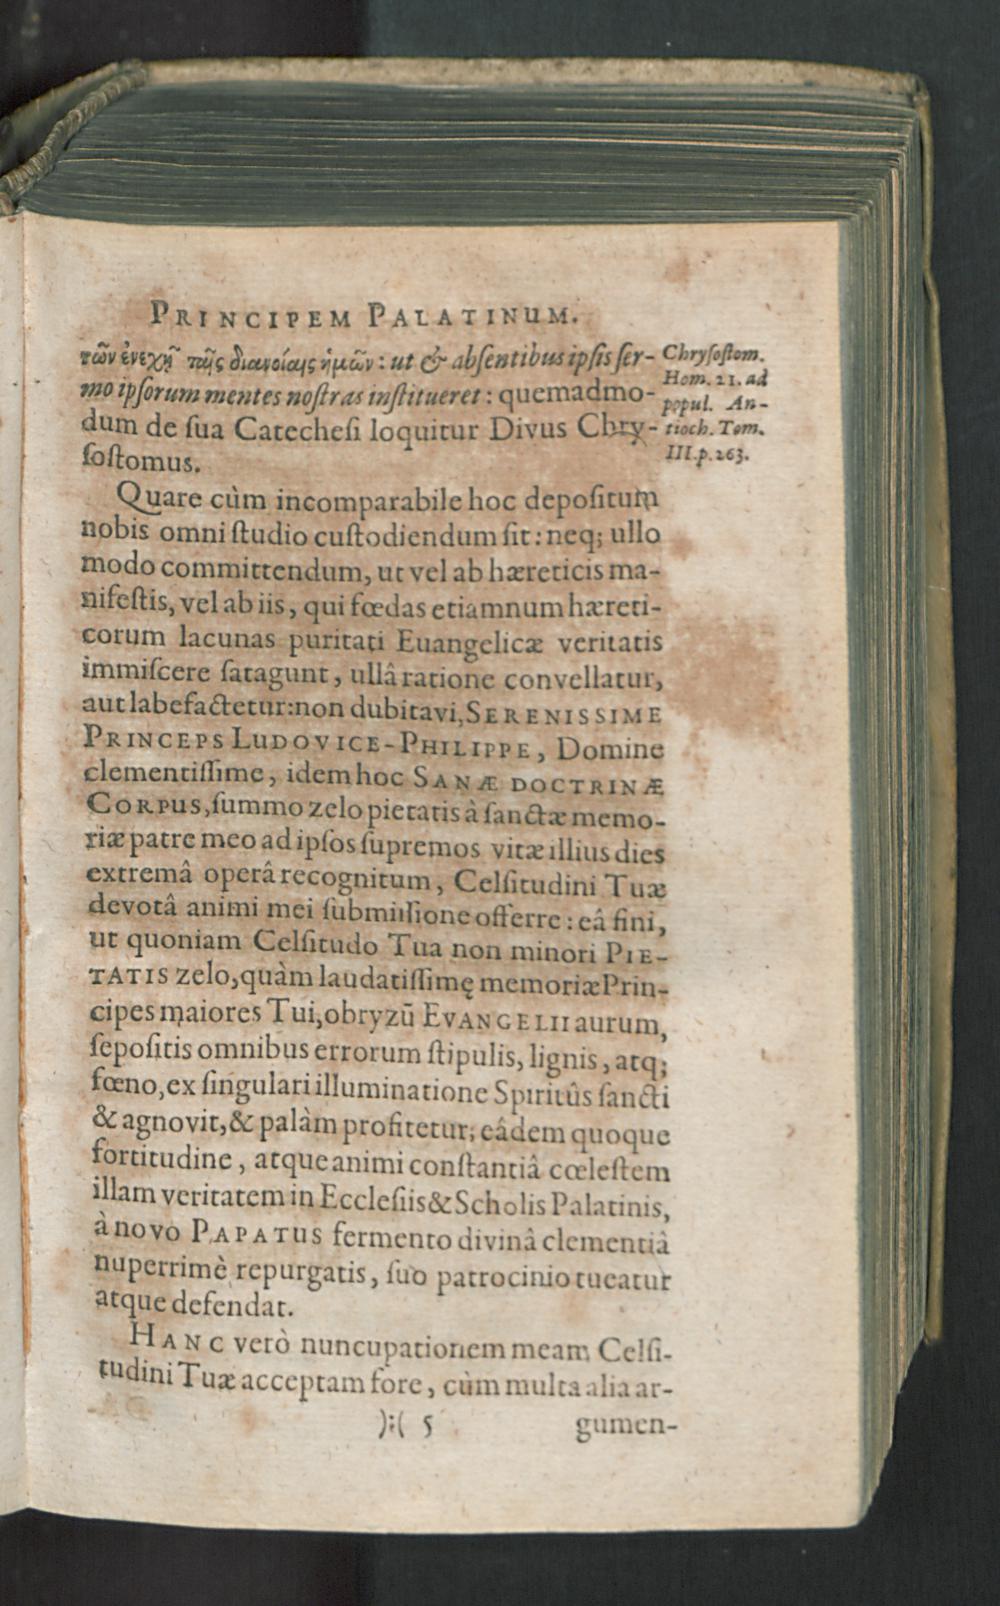 PRINCIPEM PALATINUM.
τῶν ἐνεχῇ ταῖς διανοίαις ἡμῶν: ut & absentibus ipsis ser-
mo ipsorum mentes nostras institueret: quemadmo-
dum de sua Catechesi loquitur Divus Chry-
sostomus.
Chrysostom.
Hom. 21. ad
popul. An-
tioch. Tom.
III. p. 263.
Quare cùm incomparabile hoc depositum
nobis omni studio custodiendum sit: neq; ullo
modo committendum, ut vel ab hæreticis ma-
nifestis, vel ab iis, qui fœdas etiamnum hæreti-
corum lacunas puritati Euangelicæ veritatis
immiscere satagunt, ullâ ratione convellatur,
aut labefactetur: non dubitavi, SERENISSIME
PRINCEPS LUDOVICE-PHILIPPE, Domine
clementissime, idem hoc SANÆ DOCTRINÆ
CORPUS, summo zelo pietatis à sanctæ memo-
riæ patre meo ad ipsos supremos vitæ illius dies
extremâ operâ recognitum, Celsitudini Tuæ
devotâ animi mei submissione offerre: eâ fini,
ut quoniam Celsitudo Tua non minori PIE-
TATIS zelo, quàm laudatissimę memoriæ Prin-
cipes maiores Tui, obryzū EVANGELII aurum,
sepositis omnibus errorum stipulis, lignis, atq;
fœno, ex singulari illuminatione Spiritûs sancti
& agnovit, & palàm profitetur; eâdem quoque
fortitudine, atque animi constantiâ cœlestem
illam veritatem in Ecclesiis & Scholis Palatinis,
à novo PAPATUS fermento divinâ clementiâ
nuperrimè repurgatis, suo patrocinio tueatur
atque defendat.
HANC verò nuncupationem meam Celsi-
tudini Tuæ acceptam fore, cùm multa alia ar-
):( 5 gumen-